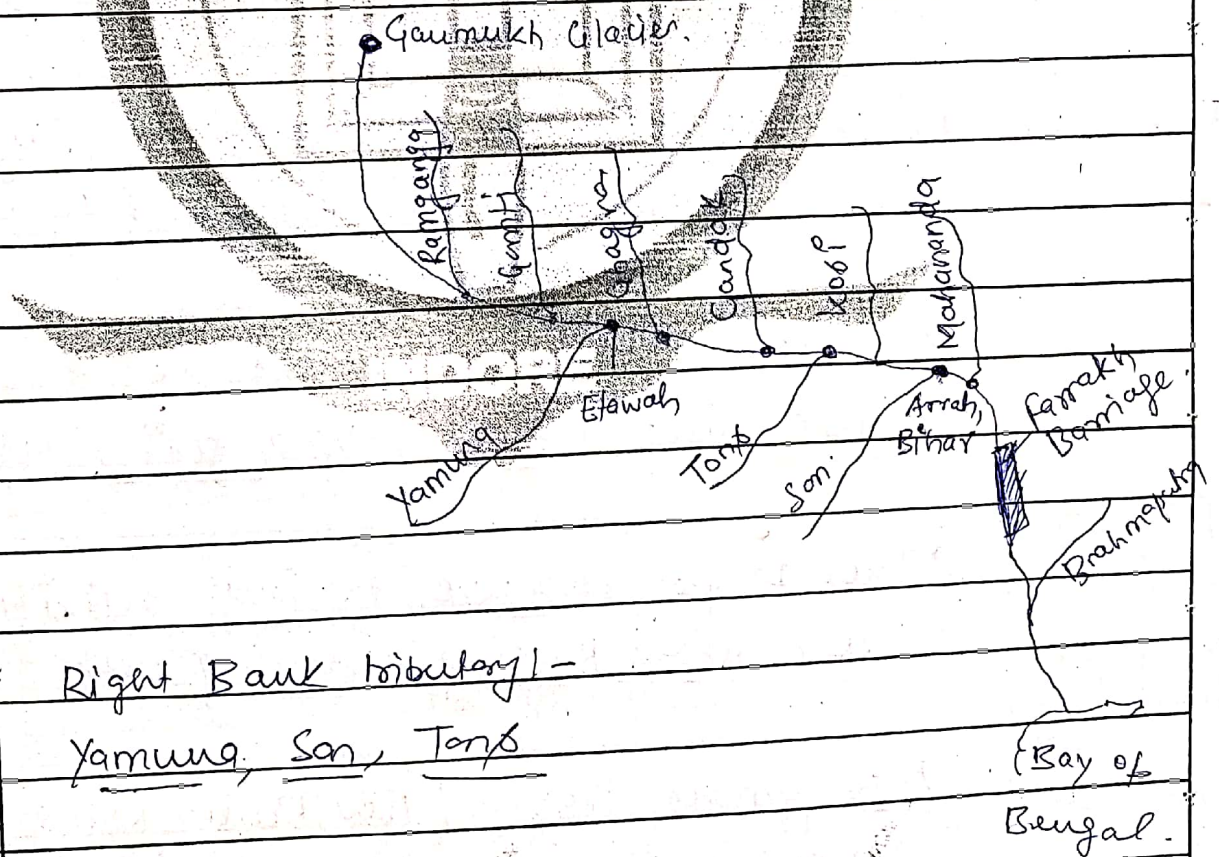 Gaumukh Glacier.
Ramganga
Gomti
Ghagra
Gandak
Kosi
Mahananda
Etawah
Arrah,
Bihar
Farrakh
Barriage.
Yamuna
Tons
Son
Brahmaputra
Right Bank tributary!-
Yamuna, Son, Tons
Bay of
Bengal.